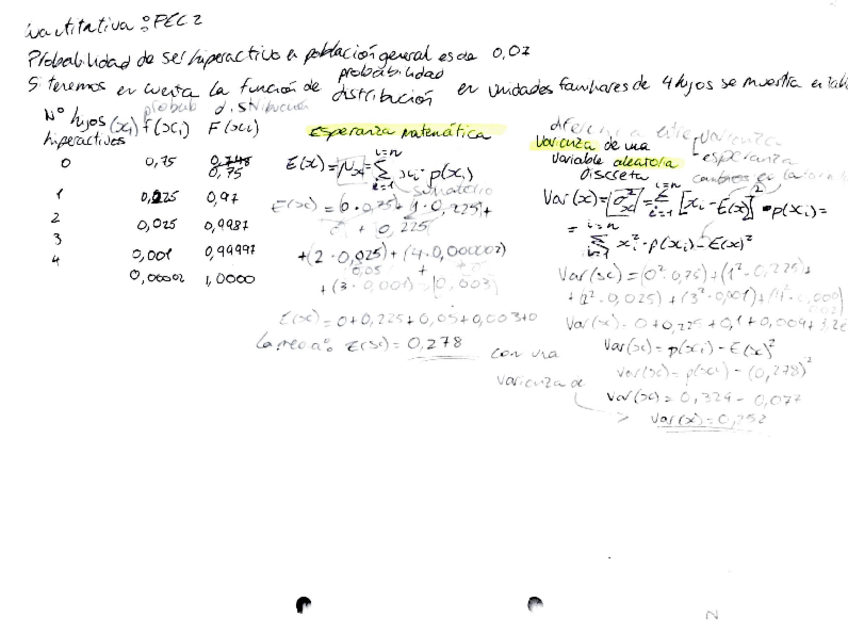 Cuantitativa: PEC 2
Probabilidad de ser hiperactivo en población general es de 0,07
Si tenemos en cuenta la función de probabilidad distribución en unidades familiares de 4 hijos se muestra en
Nº hijos hiperactivos (xi) probab f(xi) distribución F(xi)
0 0,75 0,748 0,75
1 0,225 0,97
2 0,025 0,9987
3
4 0,001 0,99997
0,00002 1,0000
Esperanza Matemática
E(x)=μx=Σ i=n i=1 xi·p(xi)
sumatorio
E(x)=(0·0,75)+(1·0,225)+
+ 0,225
+(2·0,025)+(4·0,000002)
0,05 +
+(3·0,001)=(0,003)
E(x)=0+0,225+0,05+0,003+0
La media: E(x)=0,278
con una
varianza de
diferencia entre varianza
Varianza de una - esperanza
variable aleatoria
discreta
Var(x)=σ²x=Σ i=n i=1 [xi-E(x)]²·p(xi)=
= Σ i=n i=1 xi²·p(xi)-E(x)²
Var(x)=(0²·0,75)+(1²·0,225)+
+(2²·0,025)+(3²·0,001)+(4²·0,000
002)
Var(x)=0+0,225+0,1+0,009+3,2
Var(x)=p(xi)-E(x)²
Var(x)=p(xi)-(0,278)²
Var(x)=0,329-0,077
Var(x)=0,252